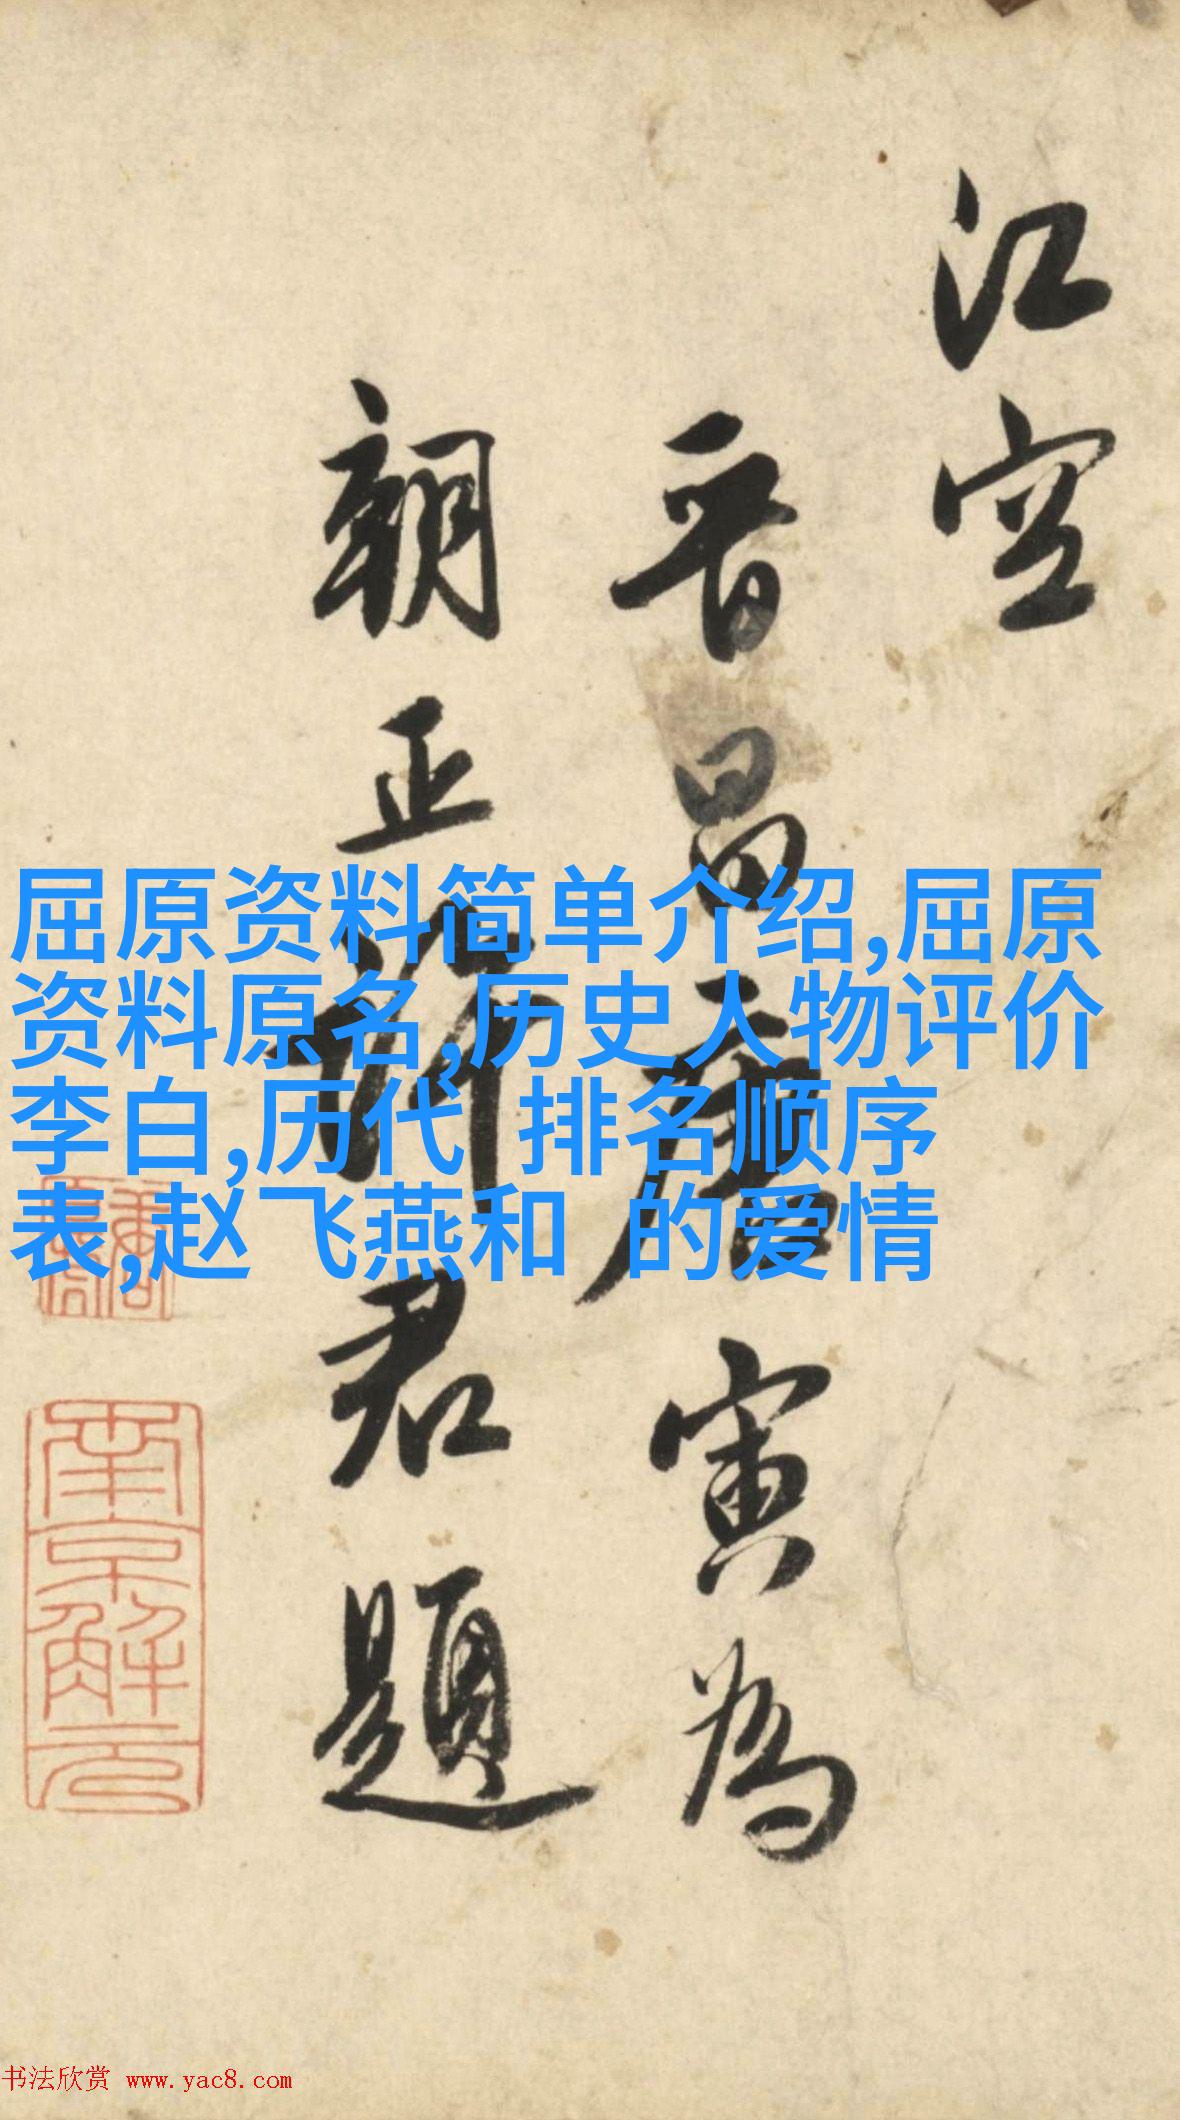 江空
晋昌唐寅為
朝正許君題
屈原资料简单介绍,屈原
资料原名,历史人物评价
李白,历代 排名顺序
表,赵飞燕和 的爱情
南京解元
书法欣赏 www.yac8.com